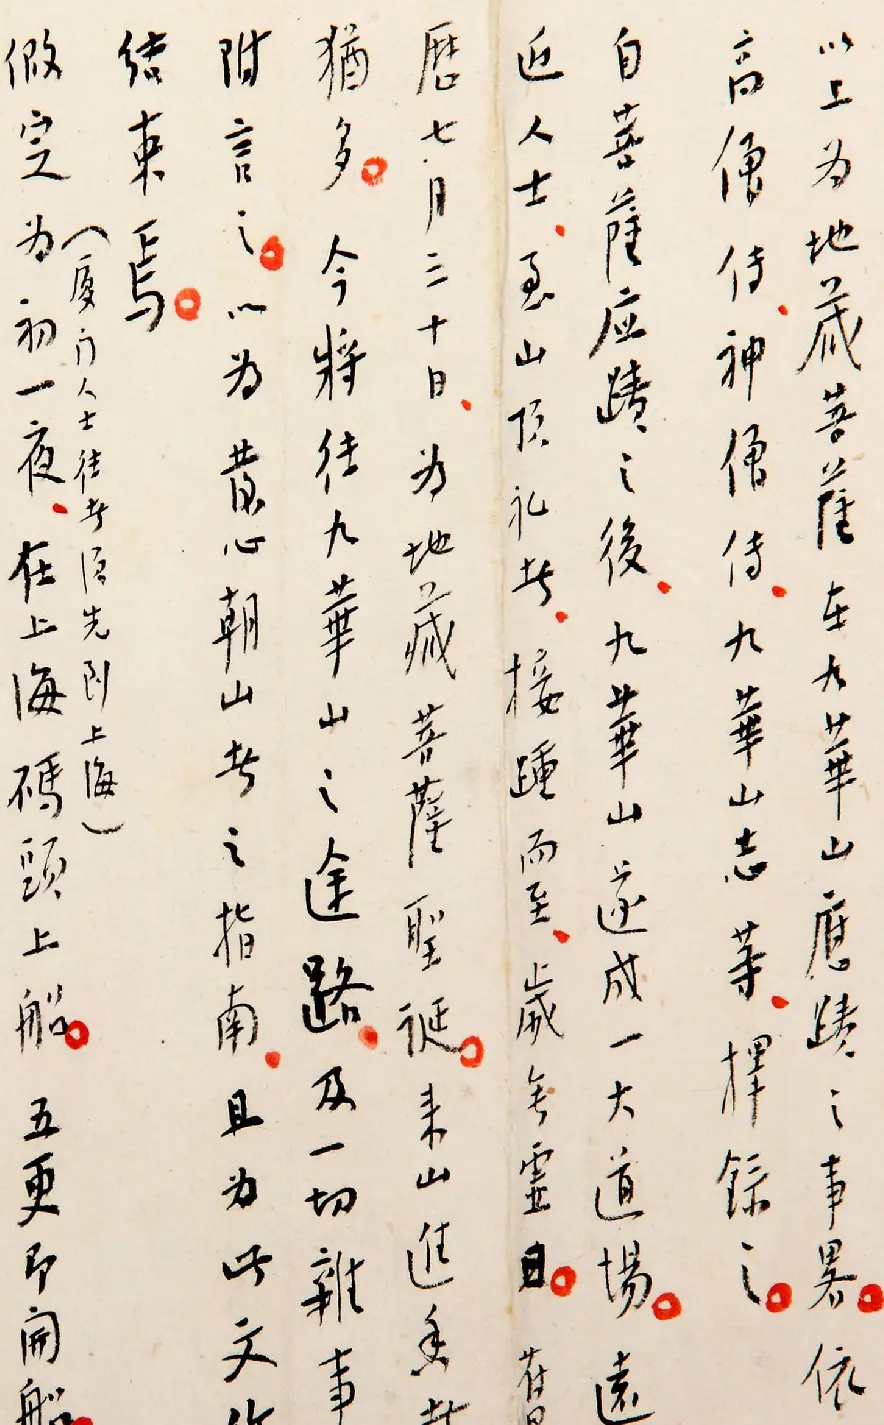 以上为地藏菩薩在九華山應蹟之事畧依
高僧传神僧传九華山志等擇録之
自菩薩应蹟之後九華山遂成一大道場遠
近人士至山顶礼者接踵而至歲無虛日舊
歷七月三十日为地藏菩薩聖诞来山進香者
猶多今將往九華山之途路及一切雜事
附言之以为发心朝山者之指南且为此文作
结束焉
(厦门人士往者须先到上海)
假定为初一夜在上海碼頭上船五更即開船